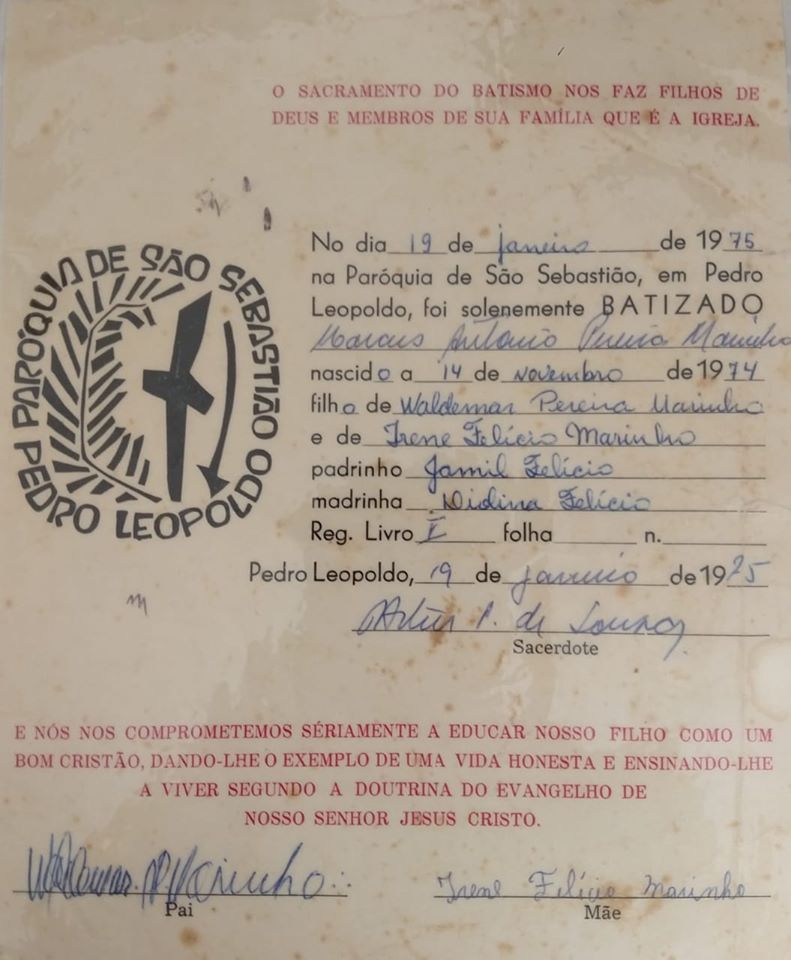 O SACRAMENTO DO BATISMO NOS FAZ FILHOS DE
DEUS E MEMBROS DE SUA FAMÍLIA QUE É A IGREJA.
PARÓQUIA DE SÃO SEBASTIÃO
PEDRO LEOPOLDO
No dia 19 de janeiro de 1975
na Paróquia de São Sebastião, em Pedro
Leopoldo, foi solenemente BATIZADO
Marcus Antonio Pereira Marinho
nascido a 14 de novembro de 1974
filho de Waldemar Pereira Marinho
e de Irene Felício Marinho
padrinho Jamil Felício
madrinha Didina Felício
Reg. Livro I folha n.
Pedro Leopoldo, 19 de janeiro de 1975
Artur P. de Souza
Sacerdote
E NÓS NOS COMPROMETEMOS SÉRIAMENTE A EDUCAR NOSSO FILHO COMO UM
BOM CRISTÃO, DANDO-LHE O EXEMPLO DE UMA VIDA HONESTA E ENSINANDO-LHE
A VIVER SEGUNDO A DOUTRINA DO EVANGELHO DE
NOSSO SENHOR JESUS CRISTO.
Waldemar P Marinho Irene Felício Marinho
Pai Mãe